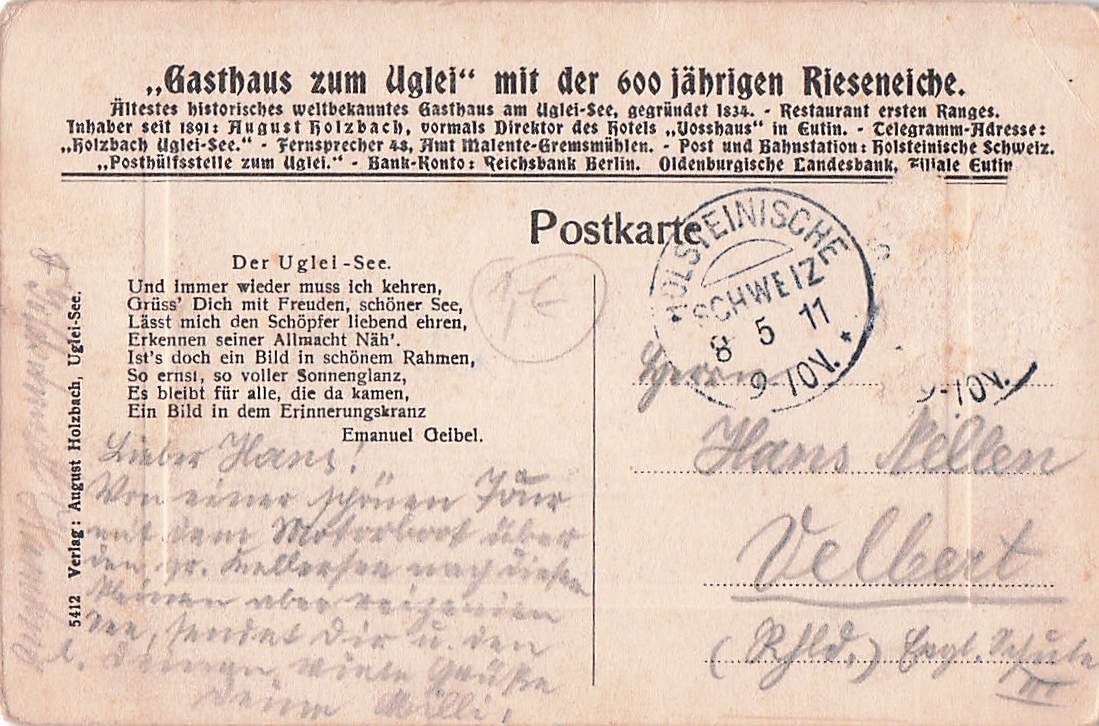 „Gasthaus zum Uglei“ mit der 600 jährigen Rieseneiche.
Ältestes historisches weltbekanntes Gasthaus am Uglei-See, gegründet 1834. - Restaurant ersten Ranges.
Inhaber seit 1891: August Holzbach, vormals Direktor des Hotels „Vosshaus“ in Eutin. - Telegramm-Adresse:
„Holzbach Uglei-See.“ - Fernsprecher 48, Amt Malente-Gremsmühlen. - Post und Bahnstation: Holsteinische Schweiz.
„Posthülfsstelle zum Uglei.“ - Bank-Konto: Reichsbank Berlin. Oldenburgische Landesbank, Filiale Eutin
Postkarte
HOLSTEINISCHE
SCHWEIZ
8 5 11
9-10V.
9-10V.
Der Uglei-See.
Und immer wieder muss ich kehren,
Grüss' Dich mit Freuden, schöner See,
Lässt mich den Schöpfer liebend ehren,
Erkennen seiner Allmacht Näh'.
Ist's doch ein Bild in schönem Rahmen,
So ernst, so voller Sonnenglanz,
Es bleibt für alle, die da kamen,
Ein Bild in dem Erinnerungskranz
Emanuel Geibel.
1 €
Lieber Hans!
Von einer schönen Tour
mit dem Motorboot über
den gr. Kellersee nach diesem
kleinen aber reizenden
See, sendet Dir u. den
l. Deinen viele Grüße
Deine Milli.
5412 Verlag: August Holzbach, Uglei-See.
Herrn
Hans Nellen
Velbert
(Rhld.) Evgl. Schule
III